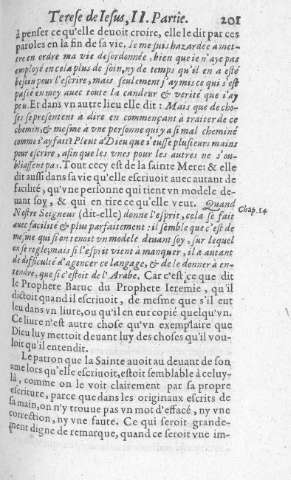 Terese de Iesus, II. Partie. 201
à penser ce qu'elle deuoit croire, elle le dit par ces
paroles en la fin de sa vie. Ie me suis hazardée a met-
tre en ordre ma vie desordonnée, bien que ie n'aye pas
employé en cela plus de soin, ny de temps qu'il en a esté
besoin pour l'escrire, mais seulement j'ay mis ce qui s'est
passé en moy auec toute la candeur & verité que i'ay
peu. Et dans vn autre lieu elle dit : Mais que de cho-
ses se presentent a dire en commençant à traiter de ce
chemin, & mesme a vne personne qui y a si mal cheminé
comme i'ay fait? Pleut à Dieu que i'eusse plusieurs mains
pour escrire, afin que les vnes pour les autres ne s'ou-
bliassent pas. Tout cecy est de la sainte Mere: & elle
dit aussi dans sa vie qu'elle escriuoit auec autant de
facilité, qu'vne personne qui tient vn modele de-
uant soy, & qui en tire ce qu'elle veut. Quand
Nostre Seigneur (dit-elle) donne l'esprit, cela se fait
Chap. 14
auec facilité & plus parfaitement : il semble que c'est de
me, me qui ont en soit vn modele deuant soy, sur lequel
on se regle; mais si l'esprit vient à manquer, il a autant
de difficulté d'agencer ce langage, & de le donner à en-
tendre, que si c'estoit de l'Arabe. Car c'est ce que dit
le Prophete Baruc du Prophete Ieremie, qu'il
dictoit quand il escriuoit, de mesme que s'il eut
leu dans vn liure, ou qu'il en eut copié quelqu'vn.
Ce liure n'est autre chose qu'vn exemplaire que
Dieu luy mettoit deuant luy des choses qu'il vou-
loit qu'il entendit.
Le patron que la Sainte auoit au deuant de son
ame lors qu'elle escriuoit, estoit semblable à celuy-
là, comme on le voit clairement par sa propre
escriture, parce que dans les originaux escrits de
sa main, on n'y trouue pas vn mot d'effacé, ny vne
correction, ny vne faute. Ce qui seroit grande-
ment digne de remarque, quand ce seroit vne im-